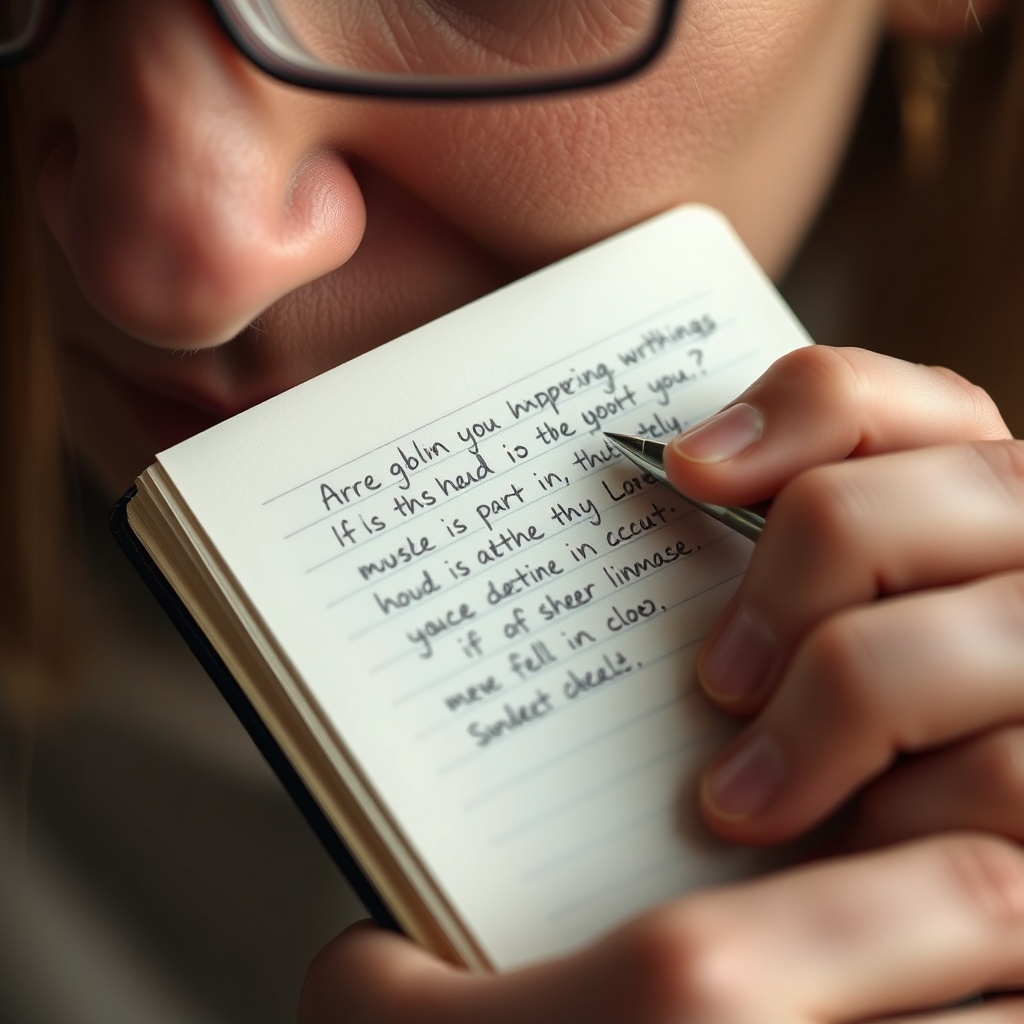 Arre gblin you wopering wrthings
If is ths head is tbe yoort you.?
musle is part in, thut tely.
houd is atthe thy Lore
yauce detine in accut.
if of sheer linmase.
mere fell in cloo,
Sunleet dealt.